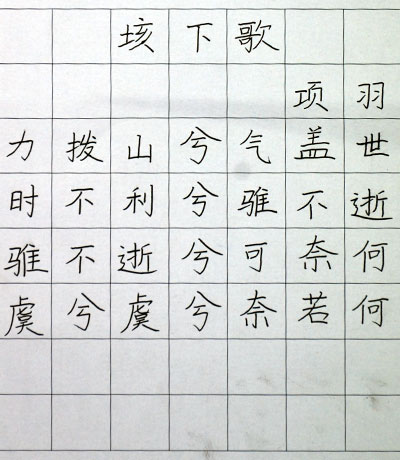 垓下歌
项羽
力拨山兮气盖世
时不利兮骓不逝
骓不逝兮可奈何
虞兮虞兮奈若何